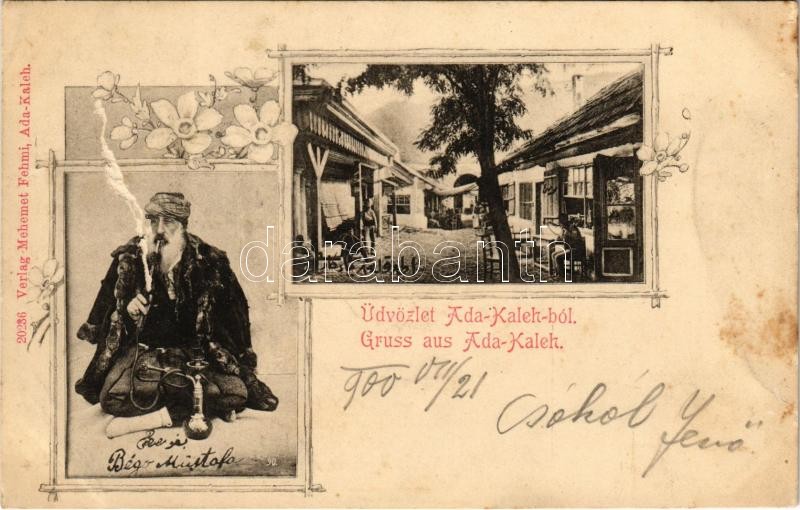 20236 Verlag Mehemet Fehmi, Ada-Kaleh.
darabanth
Üdvözlet Ada-Kaleh-ból.
Gruss aus Ada-Kaleh.
900 VII/21
Csókol Jenő
Bégo Mustafa
90.